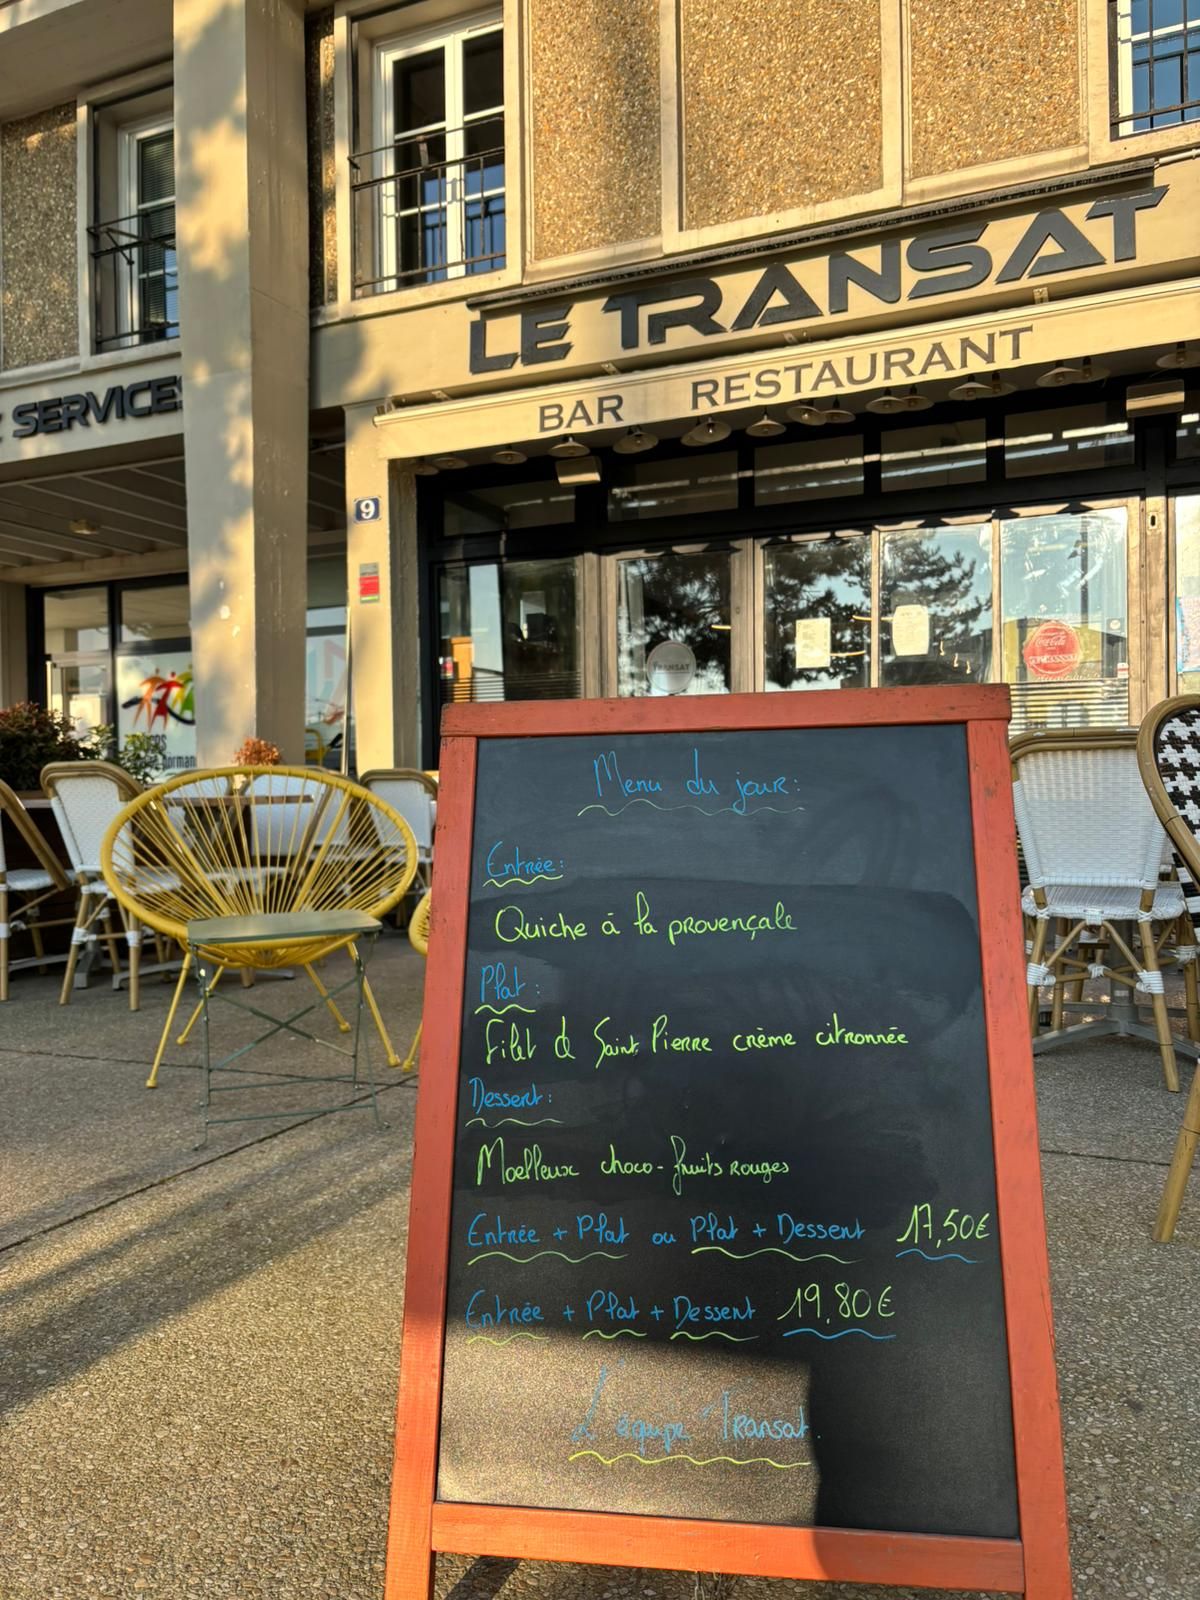 LE TRANSAT
BAR RESTAURANT
SERVICES
9
TRANSAT
Coca-Cola
Menu du jour:
Entrée:
Quiche à la provençale
Plat:
Filet de Saint Pierre crème citronnée
Dessert:
Moelleux choco-fruits rouges
Entrée + Plat ou Plat + Dessert 17,50€
Entrée + Plat + Dessert 19,80€
L'équipe Transat.